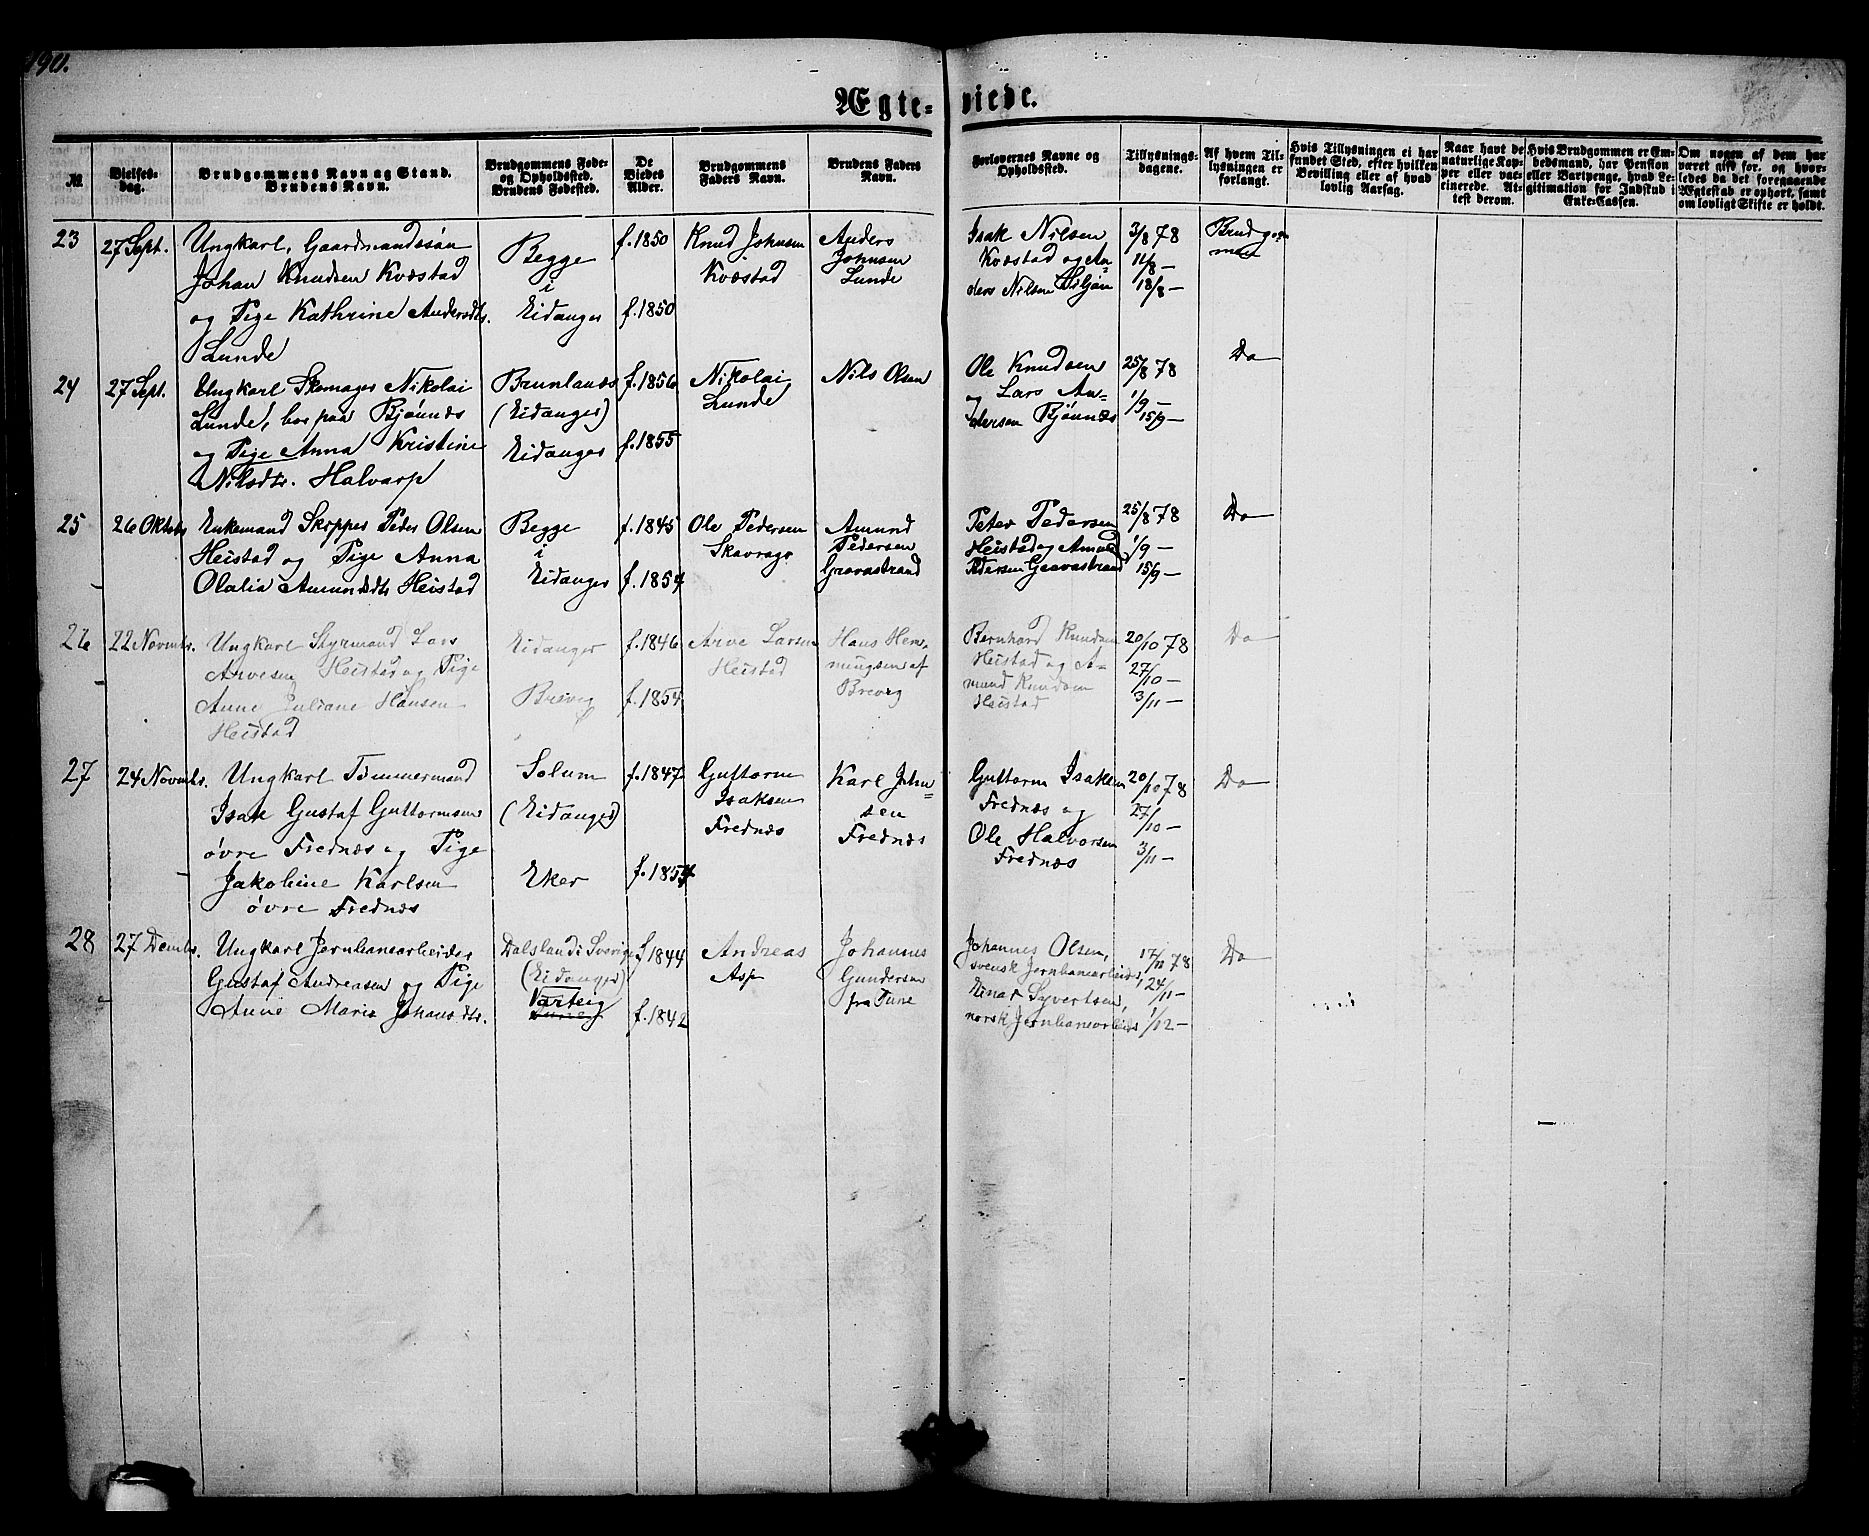 190.
Ægte-viede.
No.
Vielses-
dag.
Brudgommens Navn og Stand.
Brudens Navn.
Brudgommens Føde-
og Opholdssted.
Brudens Fødested.
De
Viedes
Alder.
Brudgommens
Faders Navn.
Brudens Faders
Navn.
Forlovernes Navne og
Opholdssted.
Tillysnings-
dagene.
Af hvem Til-
lysningen er
forlangt.
Hvis Tillysningen ei har
fundet Sted, efter hvilken
Bevilling eller af hvad
lovlig Aarsag.
Naar havt de
naturlige Kop-
per eller vac-
cinerede. At-
test derom.
Hvis Brudgommen er Em-
bedsmand, har Pension
eller Vartpenge, hvad Le-
gitimation for Indskud i
Enke-Cassen.
Om nogen af dem har
været gift før, og hvor-
ledes da det foregaaende
Ægteskab er ophørt, samt
om lovligt Skifte er holdt.
23
27 Sept.
Ungkarl, Gaardmandssøn
Johan Knudsen Kvæstad
og Pige Kathrine Andersdtr.
Lunde
Begge
i
Eidanger
f. 1850
f. 1850
Knud Johnsen
Kvæstad
Anders
Johnsen
Lunde
Isak Nilsen
Kvæstad og An-
ders Nilsen
3/8 78
11/8 —
18/8 —
Brudgom-
men
24
27 Sept.
Ungkarl Skomager Nikolai
Lunde, bor paa Bjønnes
og Pige Anna Kristine
Nilsdtr. Halvarp
Brunlanæs
(Eidanger)
Eidanger
f. 1856
f. 1855
Nikolai
Lunde
Nils Olsen
Ole Knudsen
og Lars An-
dersen Bjønnes
25/8 78
1/9 —
15/9 —
Do
25
26 Oktobr
Enkemand Skipper Peder Olsen
Heistad og Pige Anna
Olalia Amundsdtr Heistad
Begge
i
Eidanger
f. 1845
f. 1854
Ole Pedersen
Skavrager
Amund
Pedersen
Gravastrand
Peter Pedersen
Heistad og Amund
Pedersen Gravastrand
25/8 78
1/9 —
15/9 —
Do
26
22 Novmbr.
Ungkarl Styrmand Lars
Arvesen Heistad og Pige
Anne Juliane Hansen
Heistad
Eidanger
Brevig
f. 1846
f. 1854
Arve Larsen
Heistad
Hans Hem-
mingsen af
Brevig
Bernhard Knudsen
Heistad og A-
mund Knudsen
Heistad
20/10 78
27/10 —
3/11 —
Do
27
24 Novmbr.
Ungkarl Tømmermand
Isak Gustaf Guttormsen
øvre Frednes og Pige
Jakobine Karlsen
øvre Frednes
Solum
(Eidanger)
Eker
f. 1847
f. 1854
Guttorm
Isaksen
Frednæs
Karl John-
sen
Frednæs
Guttorm Isaksen
Frednæs og
Ole Halvorsen
Frednæs
20/10 78
27/10 —
3/11 —
Do
28
27 Decmbr.
Ungkarl Jernbanearbeider
Gustaf Andreasen og Pige
Anne Marie Johansdtr.
Dalsland i Sverige
(Eidanger)
Varteig
f. 1844
f. 1842
Andreas
Asp
Johannes
Gundersen
fra Tune
Johannes Olsen,
svensk Jernbanearbeider,
Einar Syvertsen,
norsk Jernbanearbeider
17/11 78
24/11 —
1/12 —
Do